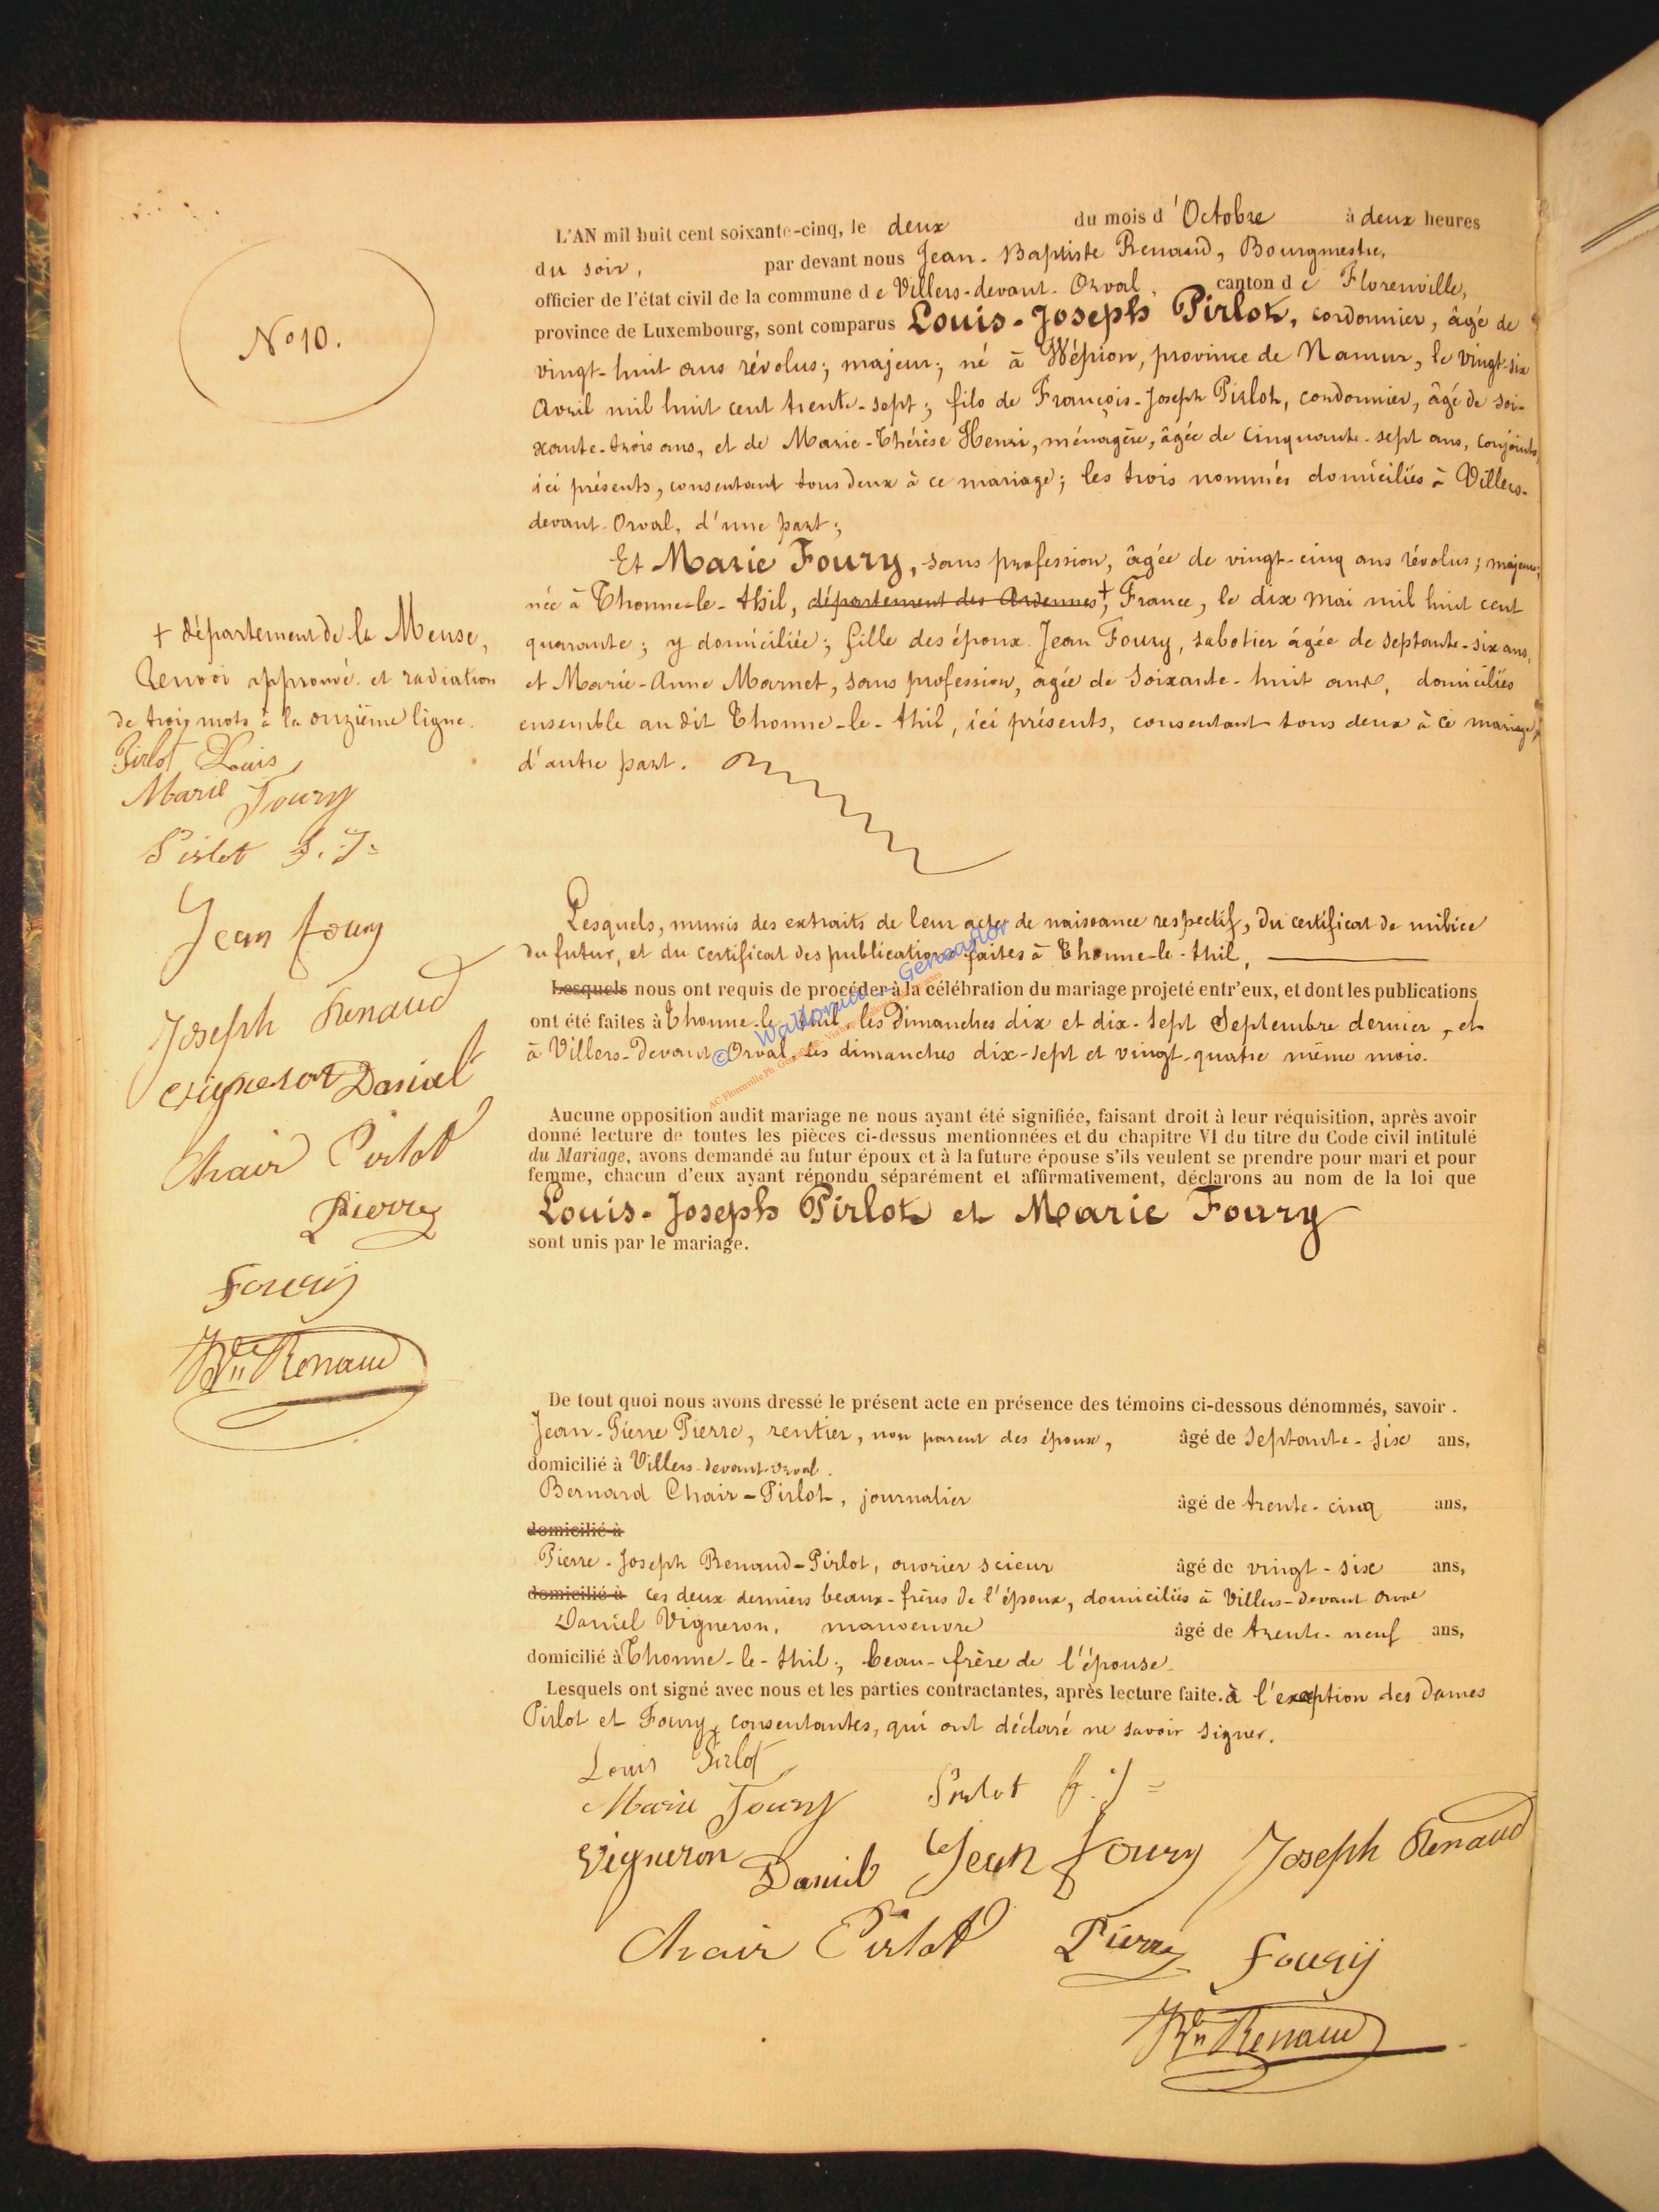 No 10.
L'AN mil huit cent soixante-cinq, le deux du mois d'Octobre à deux heures
du soir, par devant nous Jean-Baptiste Renaud, Bourgmestre,
officier de l'état civil de la commune de Villers-devant-Orval, canton de Florenville,
province de Luxembourg, sont comparus Louis-Joseph Pirlot, cordonnier, âgé de
vingt-huit ans révolus; majeur; né à Wépion, province de Namur, le vingt-six
Avril mil huit cent trente-sept; fils de François-Joseph Pirlot, cordonnier, âgé de soi-
xante-trois ans, et de Marie-Thérèse Henri, ménagère, âgée de cinquante-sept ans, conjoints,
ici présents, consentant tous deux à ce mariage; les trois nommés domiciliés à Villers-
devant-Orval, d'une part;
Et Marie Foury, sans profession, âgée de vingt-cinq ans révolus; majeure;
née à Thonne-le-thil, département des Ardennes, + France, le dix mai mil huit cent
quarante; y domiciliée; fille des époux Jean Foury, sabotier âgée de septante-six ans,
et Marie-Anne Marnet, sans profession, âgée de soixante-huit ans, domiciliés
ensemble audit Thonne-le-thil, ici présents, consentant tous deux à ce mariage,
d'autre part.
+ département de la Meuse,
Renvoi approuvé et radiation
de trois mots à la onzième ligne.
Pirlot Louis
Marie Foury
Pirlot F. J=
Jean foury
Joseph Renaud
vigneron Daniel
Chair Pirlot
Pierre
Foury
JBte Renaud
Lesquels, munis des extraits de leur acte de naissance respectif, du certificat de milice
du futur, et du certificat des publications faites à Thonne-le-thil,
Lesquels nous ont requis de procéder à la célébration du mariage projeté entr'eux, et dont les publications
ont été faites à Thonne-le-thil les Dimanches dix et dix-sept Septembre dernier, et
à Villers-Devant-Orval, les dimanches dix-sept et vingt-quatre même mois.
© Wallonica - Geneaflor
Aucune opposition audit mariage ne nous ayant été signifiée, faisant droit à leur réquisition, après avoir
donné lecture de toutes les pièces ci-dessus mentionnées et du chapitre VI du titre du Code civil intitulé
du Mariage, avons demandé au futur époux et à la future épouse s'ils veulent se prendre pour mari et pour
femme, chacun d'eux ayant répondu séparément et affirmativement, déclarons au nom de la loi que
Louis-Joseph Pirlot et Marie Foury
sont unis par le mariage.
De tout quoi nous avons dressé le présent acte en présence des témoins ci-dessous dénommés, savoir.
Jean-Pierre Pierre, rentier, non parent des époux, âgé de Septante-six ans,
domicilié à Villers-devant-orval.
Bernard Chair-Pirlot, journalier âgé de trente-cinq ans,
domicilié à
Pierre-Joseph Renaud-Pirlot, ouvrier scieur âgé de vingt-six ans,
domicilié à ces deux derniers beaux-frères de l'époux, domiciliés à Villers-devant orval
Daniel Vigneron, manoeuvre âgé de trente-neuf ans,
domicilié à Thonne-le-thil; beau-frère de l'épouse.
Lesquels ont signé avec nous et les parties contractantes, après lecture faite. à l'exception des dames
Pirlot et Foury, consentantes, qui ont déclaré ne savoir signer.
Louis Pirlot
Marie Foury Pirlot F. J=
Vigneron Daniel Jean foury Joseph Renaud
Chair Pirlot Pierre Foury
JBte Renaud